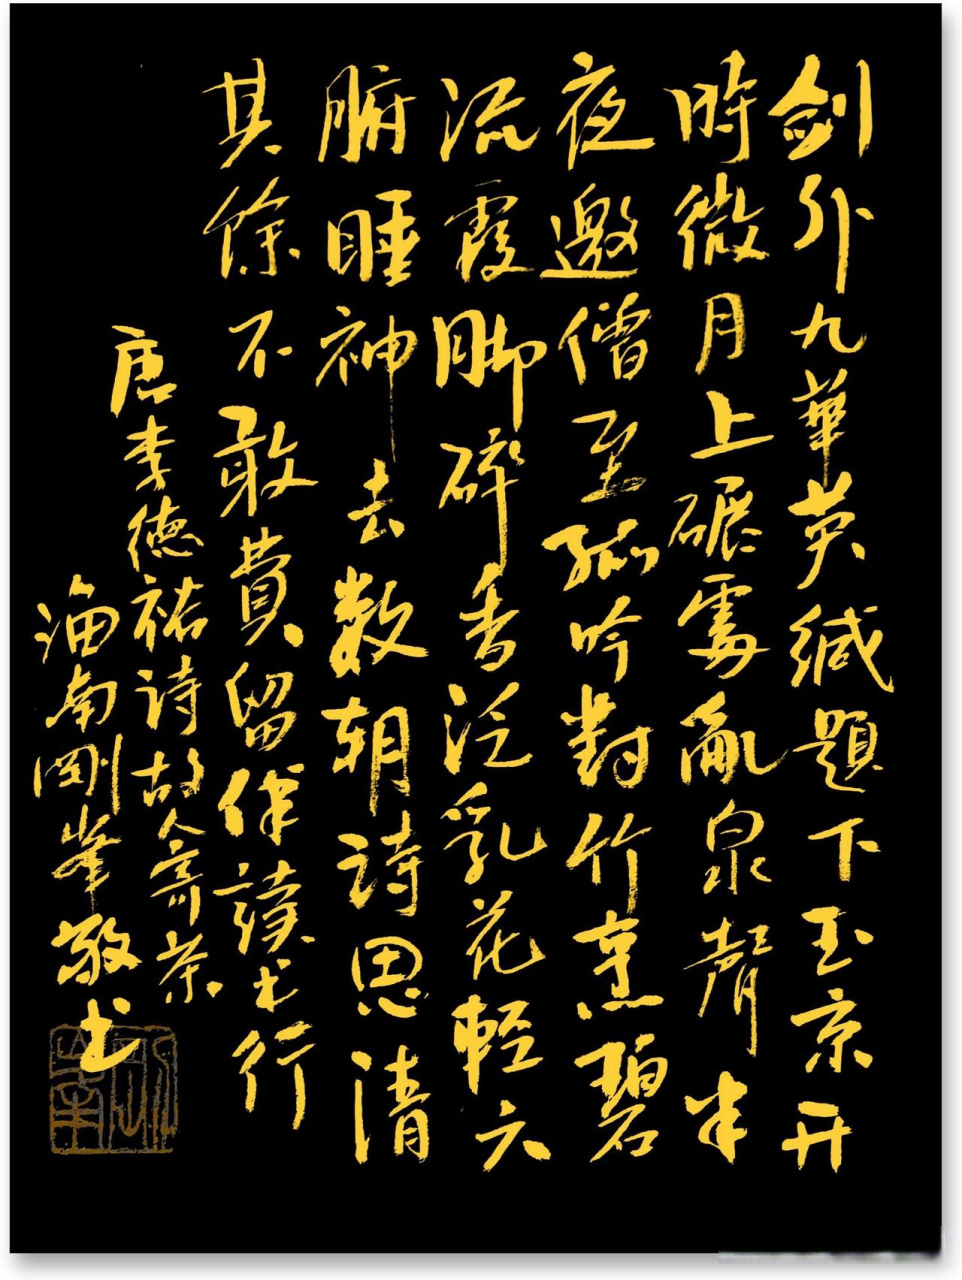 剑外九華英缄題下玉京开
時微月上碾處亂泉聲半
夜邀僧至孤吟對竹烹碧
流霞脚碎香泛乳花輕六
腑睡神去数朝诗思清
其餘不敢費留伴读书行
唐李德祐诗故人寄茶
海南剛峯敬书